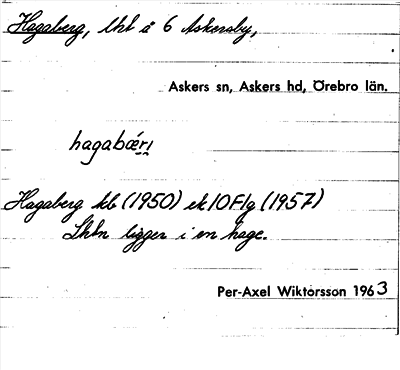 Hagaberg, lht å 6 Askersby,
Askers sn, Askers hd, Örebro län.
hagabæ̀rı
Hagaberg kb (1950) ek 10F1g (1957)
Lhtn ligger i en hage.
Per-Axel Wiktorsson 1963